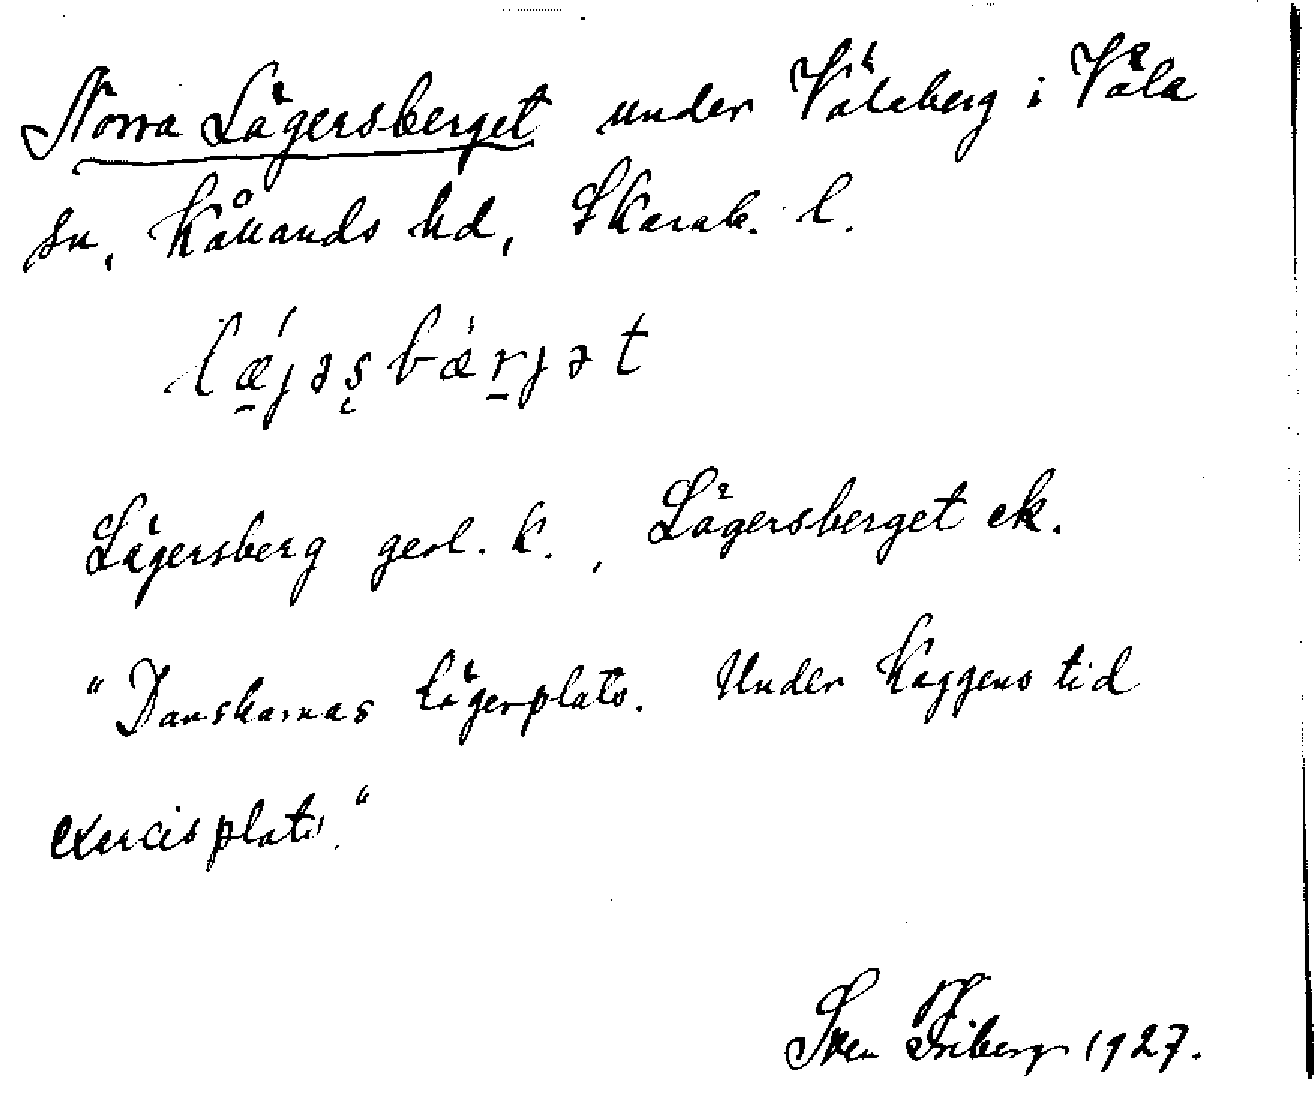 Norra Lägersberget under Väleberg i Väla
sn, Kållands hd, Skarab. l.
lǽjəsbǽrjət
Lägersberg geol. k., Lägersberget ek.
"Danskarnas lägerplats. Under Kaggens tid
exercisplats."
Sven Friberg 1927.